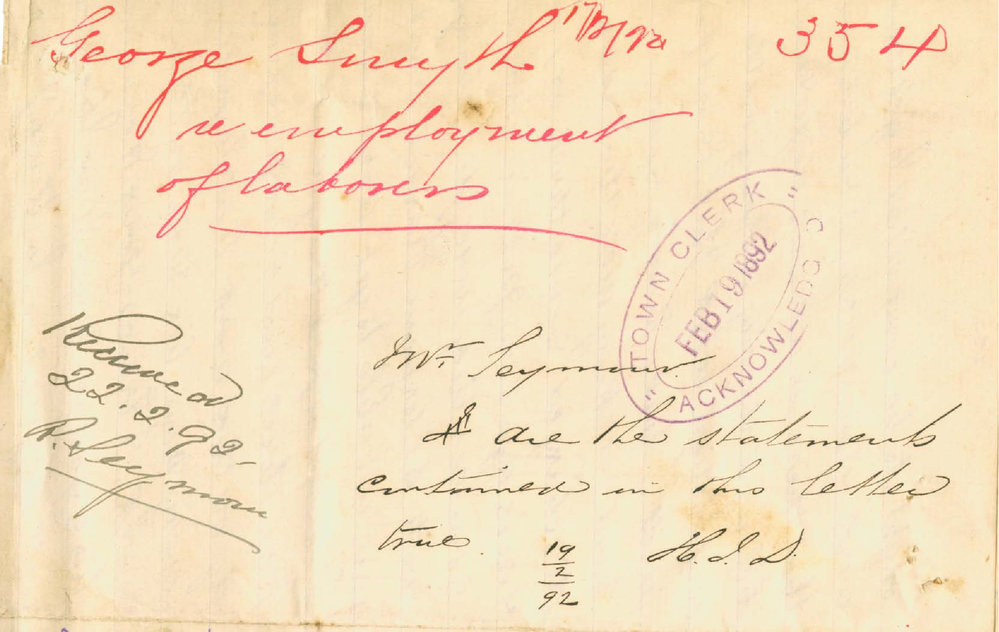 George Smyth 17/2/92 354
re employment
of laborers
"TOWN CLERK"
FEB 19 1892
ACKNOWLEDGD
Received
22.2.92
R. Seymour
Mr. Seymour
are the statements
contained in this letter
true.
19
2
92
H.J.D.